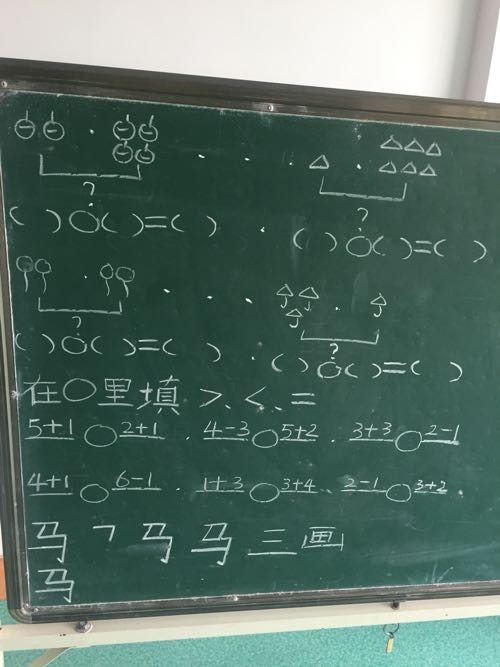 ?
?
( )○( )=( ) . ( )○( )=( )
?
?
( )○( )=( ) . ( )○( )=( )
在○里填 >、<、=
5+1○2+1 . 4-3○5+2 . 3+3○2-1
4+1○6-1 . 1+3○3+4 . 2-1○3+2
马 ㇕ 马 马 三画
马